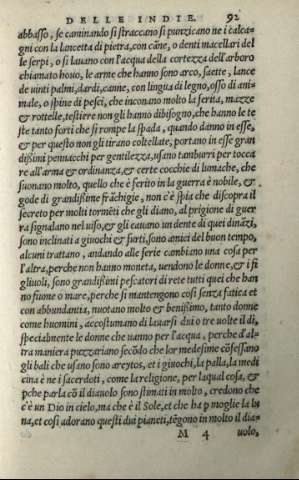 DELLE INDIE. 92
abbasso, se caminando si straccano si punzicano ne i calca-
gni con la lancetta di pietra, con cãne, o denti macellari del
le serpi, o si lauano con l'acqua della cortezza dell'arboro
chiamato houo, le arme che hanno sono arco, saette, lance
de uinti palmi, dardi, canne, con lingua di legno, osso di ani-
male, o spine di pesci, che inconano molto la ferita, mazze
& rottelle, testiere non gli hanno dibisogno, che hanno le te
ste tanto forti che si rompe la spada, quando danno in esse,
& per questo non gli tirano coltellate, portano in esse gran
dissimi pennacchi per gentilezza, usano tamburri per tocca
re all'arma & ordinanza, & certe cocchie di lumache, che
suonano molto, quello che è ferito in la guerra è nobile, &
gode di grandissime frãchigie, non c'è spia che discopra il
secreto per molti tormẽti che gli diano, al prigione di guer
ra signalano nel uiso, & gli cauano un dente di quei dinãzi,
sono inclinati a giuochi & furti, sono amici del buon tempo,
alcuni trattano, andando alle ferie cambiano una cosa per
l'altra, perche non hanno moneta, uendono le donne, & i fi
gliuoli, sono grandissimi pescatori di rete tutti quei che han
no fiume o mare, perche si mantengono cosi senza fatica et
con abbundantia, nuotano molto & benissimo, tanto donne
come huomini, accostumano di lauarsi dui o tre uolte il dì,
specialmente le donne che uanno per l'acqua, perche d'al-
tra maniera puzzariano secõdo che lor medesime cõfessano
gli bali che usano sono areytos, et i giuochi, la palla, la medi
cina è ne i sacerdoti, come la religione, per laqual cosa, &
pche parla cõ il diauolo sono stimati in molto, credono che
c'è un Dio in cielo, ma che è il Sole, et che ha p moglie la lu
na, et così adorano questi dui pianeti, tẽgono in molto il dia-
M 4 uolo,